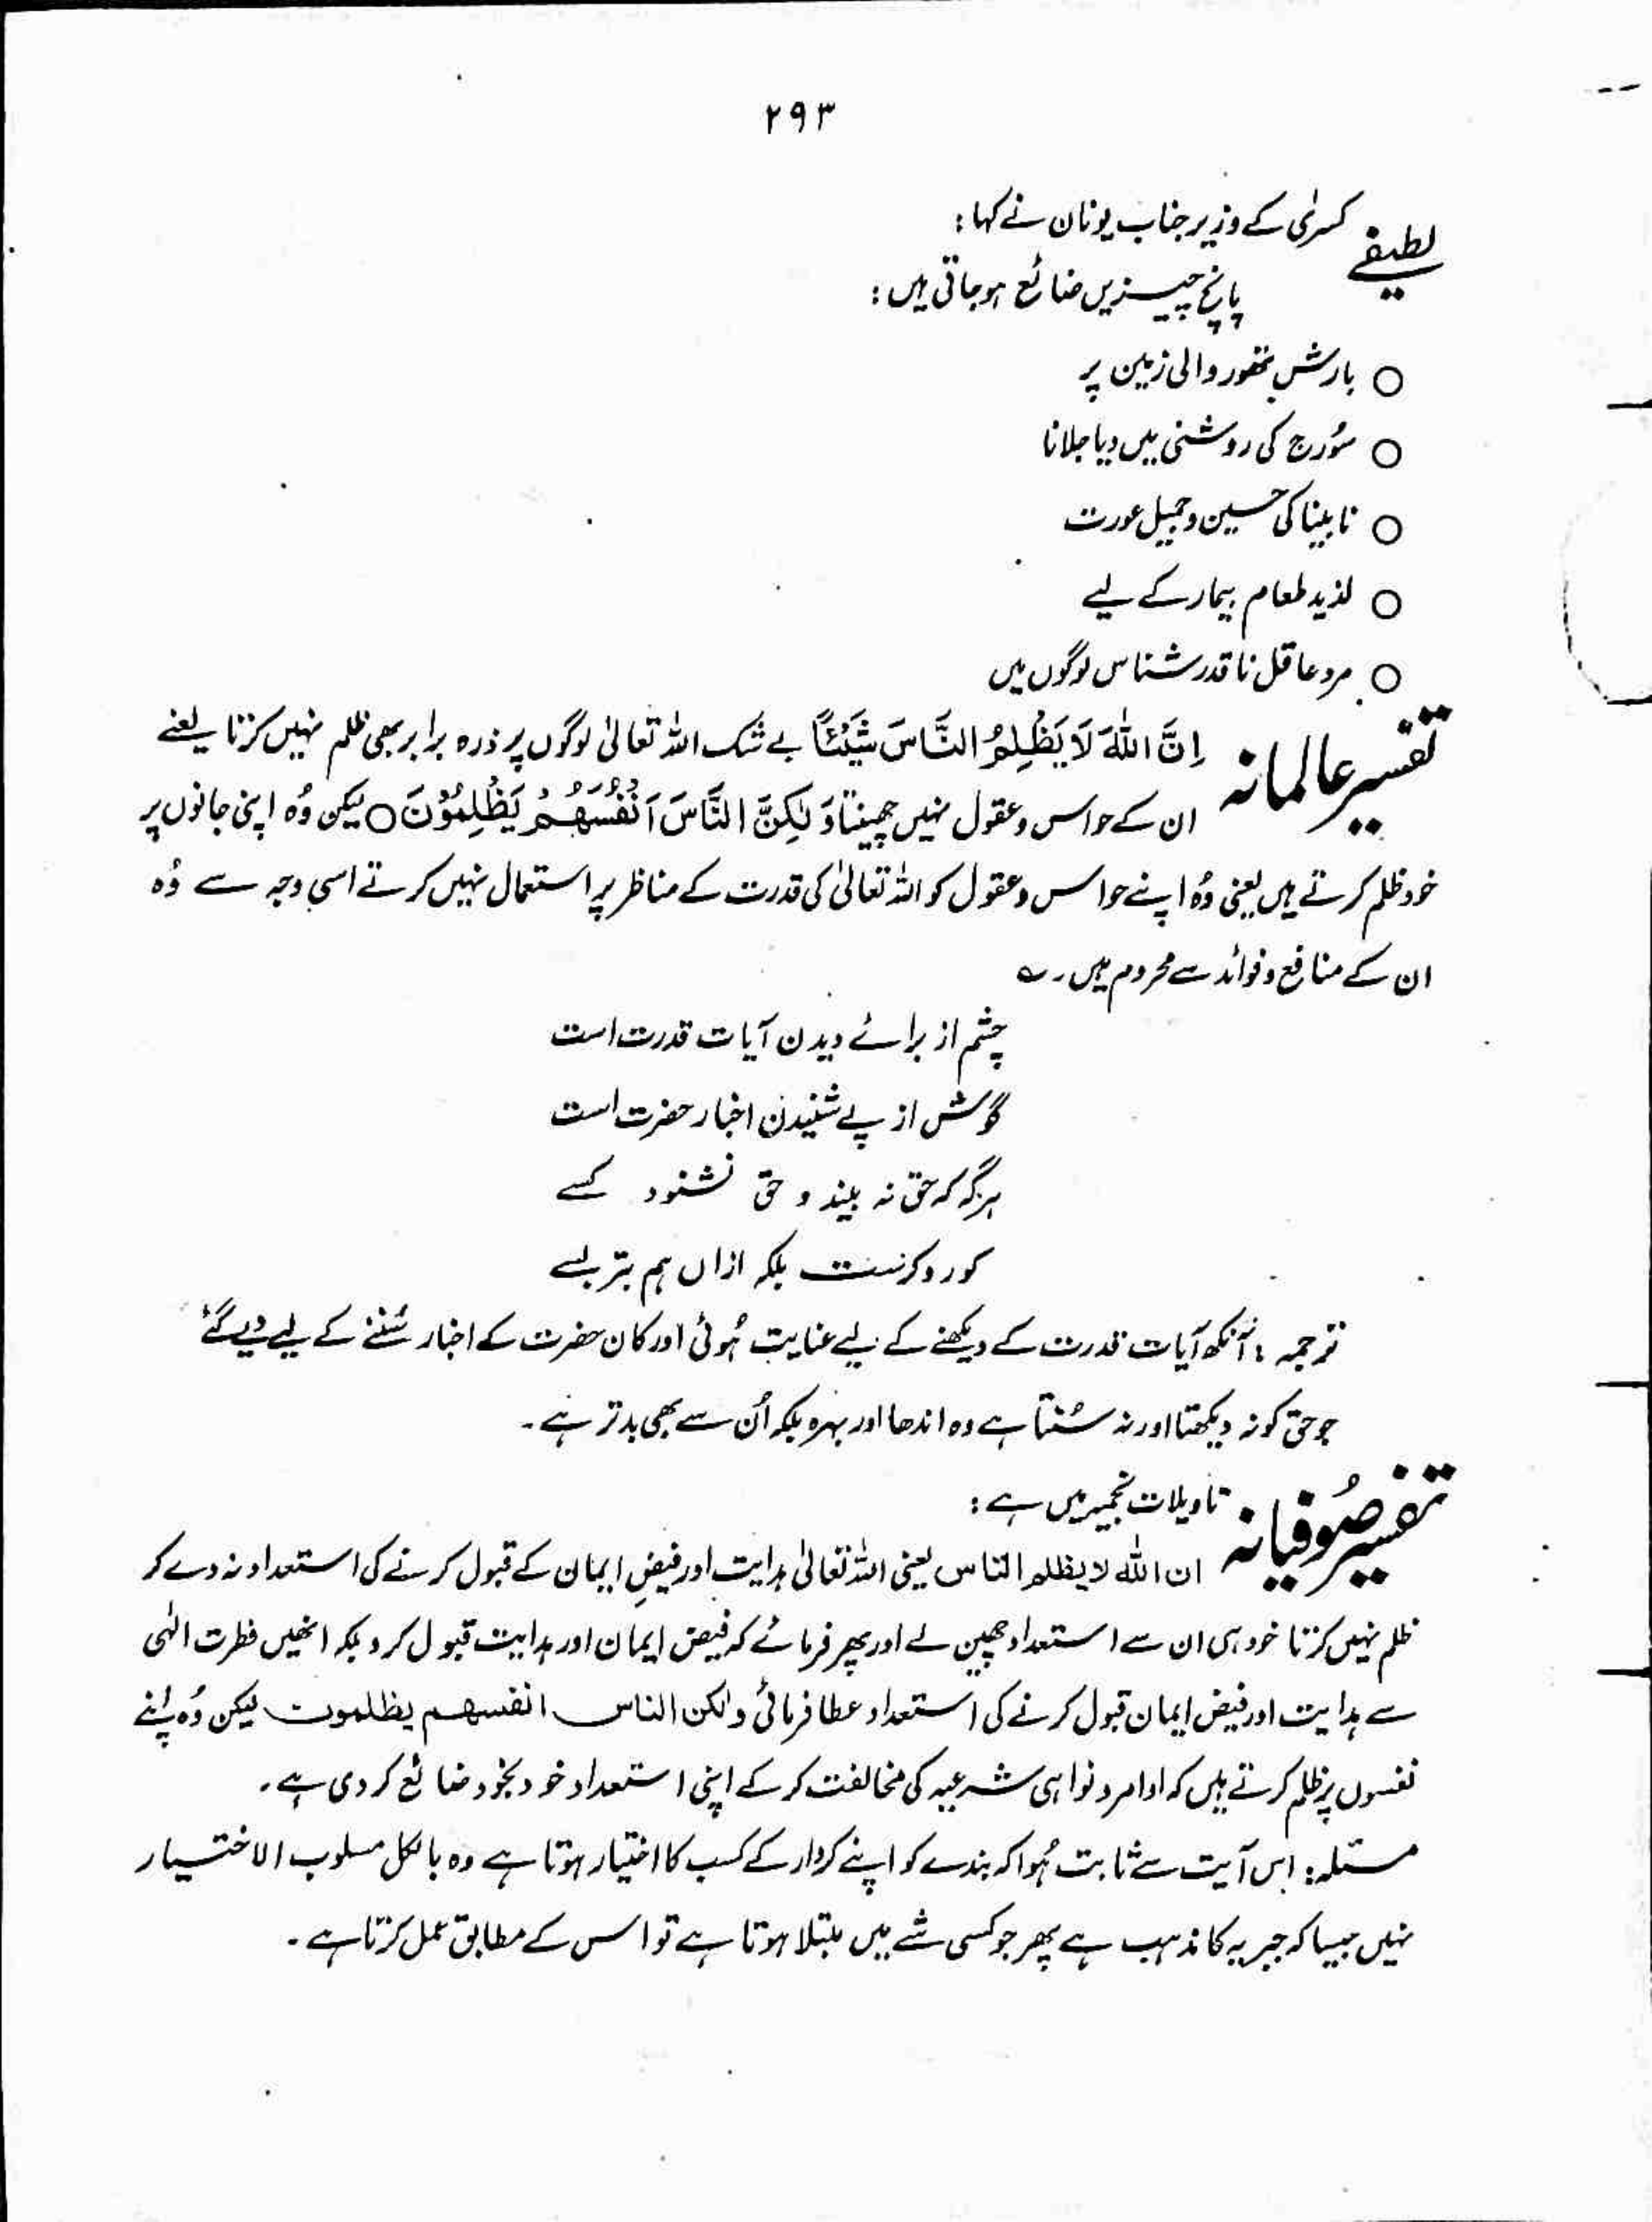 ۲۹۳
لطیفے کسریٰ کے وزیر جناب یونان نے کہا :
پانچ چیزیں ضائع ہوجاتی ہیں :
○ بارش تھور والی زمین پر
○ سُورج کی روشنی میں دیا جلانا
○ نابینا کی حسین و جمیل عورت
○ لذیذ طعام بیمار کے لیے
○ مرد عاقل ناقدر شناس لوگوں میں
تفسیر عالمانہ اِنَّ اللّٰهَ لَا یَظْلِمُ النَّاسَ شَیْئًا بے شک اللہ تعالیٰ لوگوں پر ذرہ برابر بھی ظلم نہیں کرتا یعنے
ان کے حواس و عقول نہیں چھینتا وَ لٰکِنَّ النَّاسَ اَنْفُسَهُمْ یَظْلِمُوْنَ ○ لیکن وُہ اپنی جانوں پر
خود ظلم کرتے ہیں یعنی وُہ اپنے حواس و عقول کو اللہ تعالیٰ کی قدرت کے مناظر پر استعمال نہیں کرتے اسی وجہ سے وُہ
ان کے منافع و فوائد سے محروم ہیں۔ ؎
چشم از برائے دیدن آیات قدرت است
گوش از پے شنیدن اخبار حضرت است
ہرگہ کہ حق نہ بیند و حق نشنود کسے
کور و کرست بلکہ ازاں ہم بتر بسے
ترجمہ : آنکھ آیات قدرت کے دیکھنے کے لیے عنایت ہُوئی اور کان حضرت کے اخبار سُننے کے لیے دیے گئے
جو حق کو نہ دیکھتا اور نہ سُنتا ہے وہ اندھا اور بہرہ بلکہ اُن سے بھی بدتر ہے۔
تفسیر صُوفیانہ تاویلات نجمیہ میں ہے :
ان اللّٰه لا یظلم الناس یعنی اللہ تعالیٰ ہدایت اور فیضِ ایمان کے قبول کرنے کی استعداد نہ دے کر
ظلم نہیں کرتا خود ہی ان سے استعداد چھین لے اور پھر فرمائے کہ فیض ایمان اور ہدایت قبول کرو بلکہ انھیں فطرت الٰہی
سے ہدایت اور فیض ایمان قبول کرنے کی استعداد عطا فرمائی ولٰکن الناس انفسهم یظلمون لیکن وُہ اپنے
نفسوں پر ظلم کرتے ہیں کہ اوامر و نواہی شرعیہ کی مخالفت کر کے اپنی استعداد خود بخود ضائع کر دی ہے۔
مسئلہ : اس آیت سے ثابت ہُوا کہ بندے کو اپنے کردار کے کسب کا اختیار ہوتا ہے وہ بالکل مسلوب الاختیار
نہیں جیسا کہ جبریہ کا مذہب ہے پھر جو کسی شے میں مبتلا ہوتا ہے تو اس کے مطابق عمل کرتا ہے۔